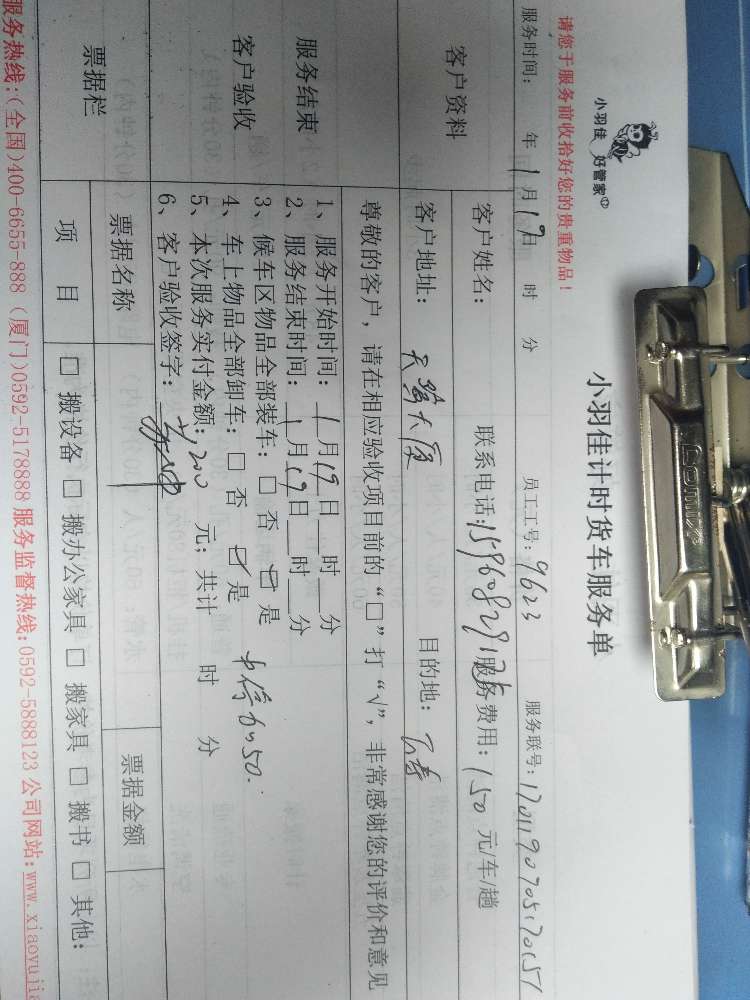 小羽佳 好管家
小羽佳计时货车服务单
请您于服务前收拾好您的贵重物品！
服务时间： 年 1月19日 时 分 员工工号：9623 服务联号：
客户资料
客户姓名： 联系电话： 服务费用：150 元/车/趟
客户地址： 大厦 目的地：
服务结束
客户验收
尊敬的客户，请在相应验收项目前的“□”打“√”，非常感谢您的评价和意见
1、服务开始时间：1月19日__时__分
2、服务结束时间：1月19日__时__分
3、候车区物品全部装车：□ 否 ☑ 是
4、车上物品全部卸车：□ 否 ☑ 是
5、本次服务实付金额：200 元；共计 时 分
6、客户验收签字：
票据栏
票据名称 票据金额
项 目 □ 搬设备 □ 搬办公家具 □ 搬家具 □ 搬书 □ 其他：
服务热线：(全国)400-6655-888 (厦门)0592-5178888 服务监督热线：0592-5888123 公司网站：www.xiaoyujia
COMIX